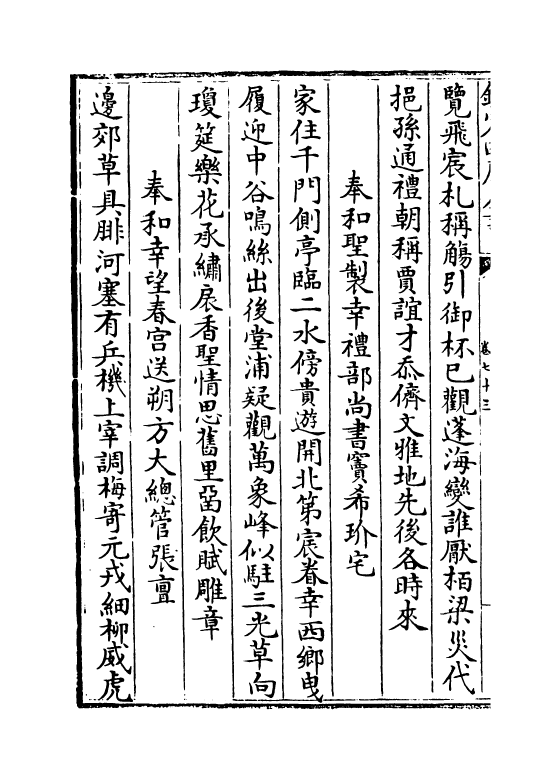 卷七十三
覽飛宸札稱觴引御杯已觀蓬海變誰厭栢梁災代
挹孫通禮朝稱賈誼才忝儕文雅地先後各時來
奉和聖製幸禮部尚書竇希玠宅
家住千門側亭臨二水傍貴遊開北第宸眷幸西鄉曳
履迎中谷鳴絲出後堂浦疑觀萬象峰似駐三光草向
瓊筵樂花承繡扆香聖情思舊里飲賦雕章
奉和幸望春宫送朔方大總管張亶
邊郊草具腓河塞有兵機上宰調梅寄元戎細柳威虎